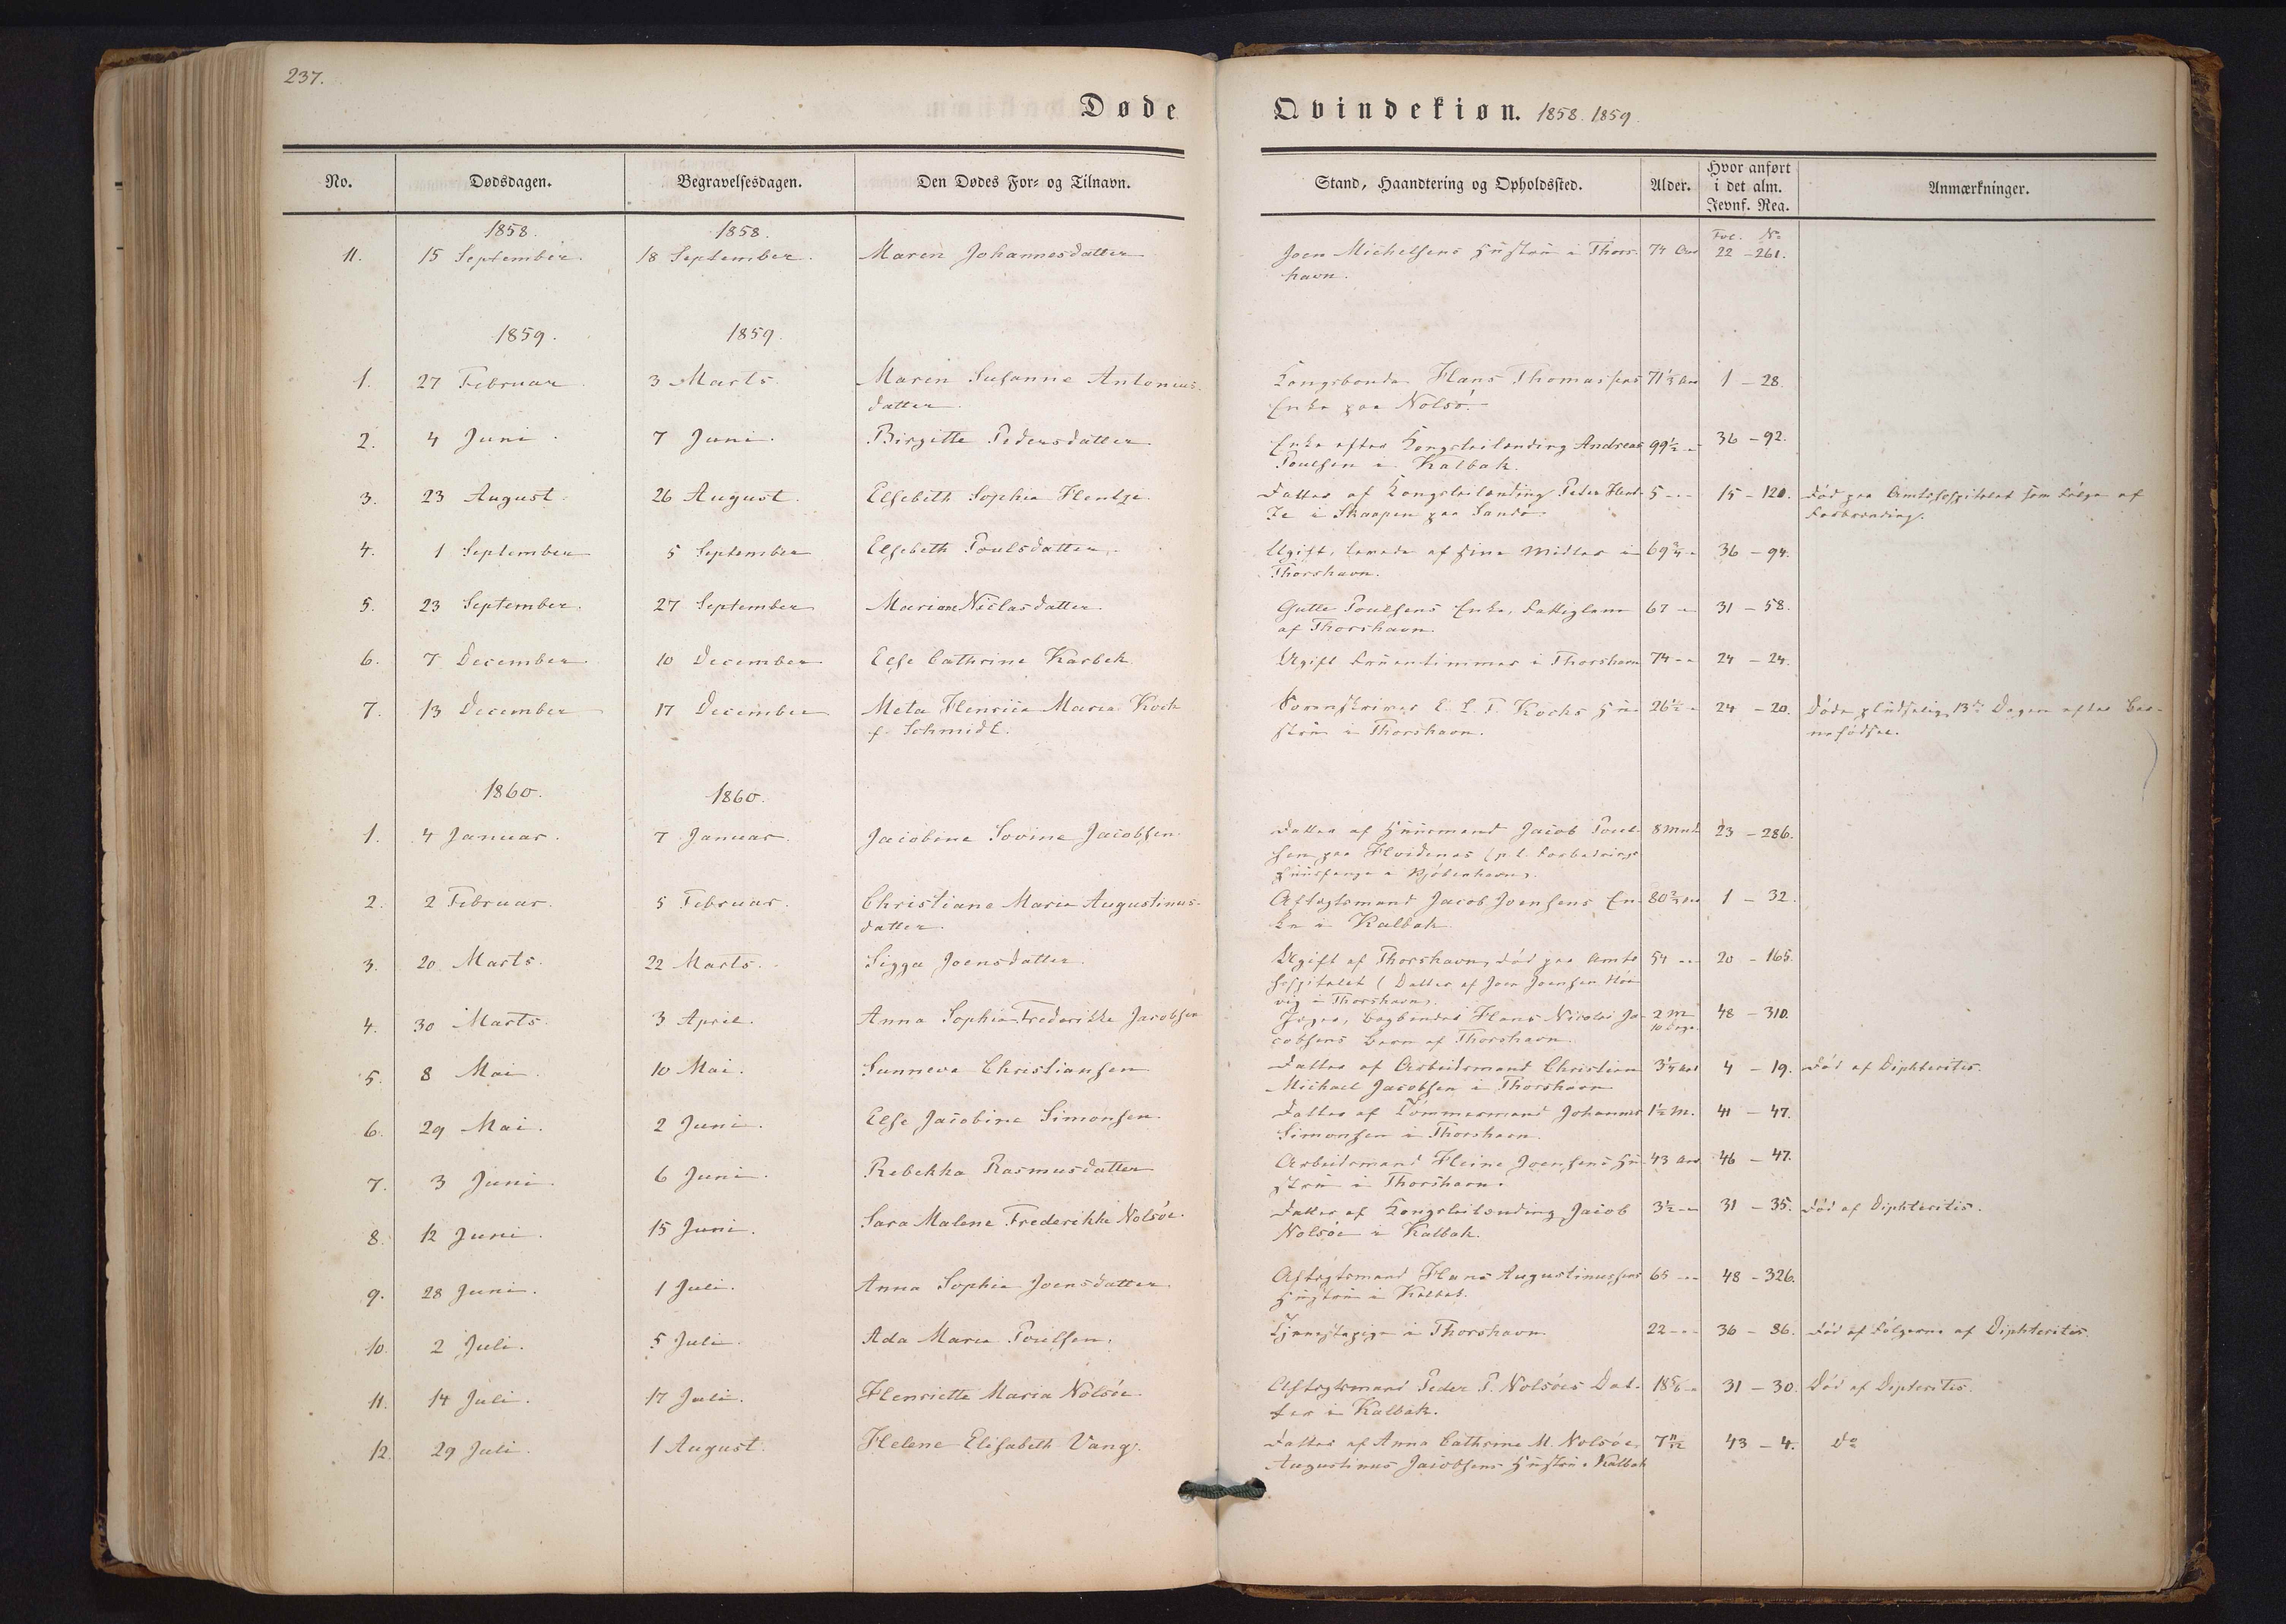 237.
Døde
Qvindekiøn. 1858. 1859.
No.
Dødsdagen.
Begravelsesdagen.
Den Dødes For- og Tilnavn.
Stand, Haandtering og Opholdssted.
Alder.
Hvor anført
i det alm.
Jevnf. Reg.
Anmærkninger.
1858.
1858.
Fol. No
11.
15 September.
18 September.
Maren Johannesdatter
Joen Michelsens Hustru i Thors-
havn.
74 Aar
22 - 261.
1859.
1859.
1.
27 Februar
3 Marts
Maren Susanne Antonius-
datter.
Kongsbonde Hans Thomassens
Enke paa Nolsö.
71 1/3 Aar
1 - 28.
2.
4 Juni
7 Juni.
Birgitte Pedersdatter
Enke efter Kongsleilænding Andreas
Poulsen i Kalbak.
99 1/2 -
36 - 92.
3.
23 August
26 August
Elsebeth Sophia Hentze
Datter af Kongsleilænding Peder Hent-
ze i Skaapen paa Sandö
5 - -
15 - 120.
Död paa Amtshospitalet som Fölge af
Forbrænding.
4.
1 September
5 September
Elsebeth Poulsdatter
Ugift, levede af sine Midler i
Thorshavn.
69 3/4 -
36 - 94.
5.
23 September.
27 September
Marian Niclasdatter
Gutte Poulsens Enke, Fattiglem
af Thorshavn.
67 -
31 - 58.
6.
7 December
10 December
Else Cathrine Karbek
Ugift Fruentimmer i Thorshavn
74 - -
24 - 24.
7.
13 December
17 December
Meta Henrica Maria Koch
f. Schmidt.
Sorenskriver E. L. T. Kochs Hu-
stru i Thorshavn.
26 1/2 -
24 - 20.
Döde pludselig 13de Dagen efter Bar-
nefödsel.
1860.
1860.
1.
4 Januar.
7 Januar.
Jacobine Sovine Jacobsen
Datter af Huusmand Jacob Poul-
sen paa Hvidenæs (p. t. Forbedrings-
huusfange i Kjöbenhavn).
8 Mnd
23 - 286.
2.
2 Februar.
5 Februar.
Christiane Maria Augustinus-
datter.
Aftægtsmand Jacob Joensens En-
ke i Kalbak
80 3/4 Aar
1 - 32.
3.
20 Marts.
22 Marts.
Sigga Joensdatter
Ugift af Thorshavn, död paa Amts-
hospitalet (Datter af Joen Joensen
i Thorshavn).
54 - -
20 - 165.
4.
30 Marts.
3 April.
Anna Sophia Frederikke Jacobsen
Jæger, Bogbinder Hans Nicolai Ja-
cobsens Barn af Thorshavn
2 M
10 Dage
48 - 310.
5.
8 Mai.
10 Mai.
Sunneva Christiansen
Datter af Arbeidsmand Christian
Michael Jacobsen i Thorshavn
3 1/4 Aar
4 - 19.
Död af Diphteritis.
6.
29 Mai.
2 Juni.
Else Jacobine Simonsen.
Datter af Tömmermand Johannes
Simonsen i Thorshavn.
1 1/2 M.
41 - 47.
7.
3 Juni
6 Juni.
Rebekka Rasmusdatter
Arbeidsmand Heine Joensens Hu-
stru i Thorshavn.
43 Aar
46 - 47.
8.
12 Juni.
15 Juni.
Sara Malene Frederikke Nolsöe.
Datter af Kongsleilænding Jacob
Nolsöe i Kalbak.
3 1/2 -
31 - 35.
Död af Diphteritis.
9.
28 Juni.
1 Juli.
Anna Sophia Joensdatter
Aftægtsmand Hans Augustinussens
Hustru i Kalbak.
65 - -
48 - 326.
10.
2 Juli.
5 Juli.
Ada Maria Poulsen.
Tjenestepige i Thorshavn
22 - -
36 - 86.
Död af Fölgerne af Diphteritis.
11.
14 Juli.
17 Juli.
Henriette Maria Nolsöe.
Aftægtsmand Peder P. Nolsöes Dat-
ter i Kalbak.
18 5/6 -
31 - 30.
Död af Dipteritis.
12.
29 Juli.
1 August.
Helene Elisabeth Vang.
Datter af Anna Cathrine M. Nolsöe,
Augustinus Jacobsens Hustru i Kalbak
7 11/12
43 - 4.
Do